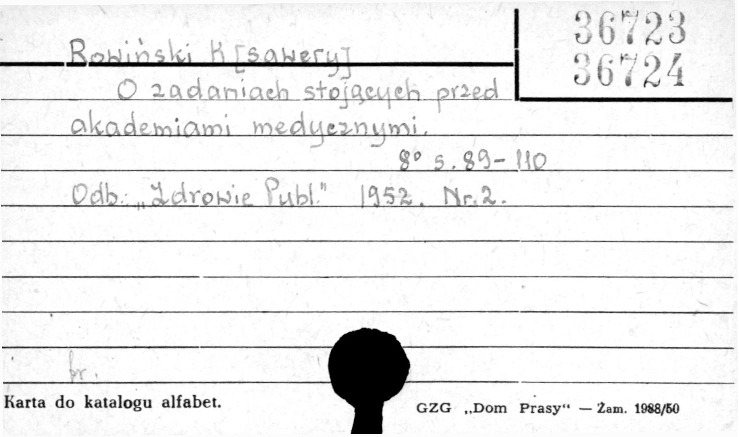 36723
36724
Rowiński K [sawery]
O zadaniach stojących przed
akademiami medycznymi.
8° s. 89-110
Odb.: „Zdrowie Publ." 1952. Nr. 2.
br.
Karta do katalogu alfabet.
GZG „Dom Prasy“ — Zam. 1988/50